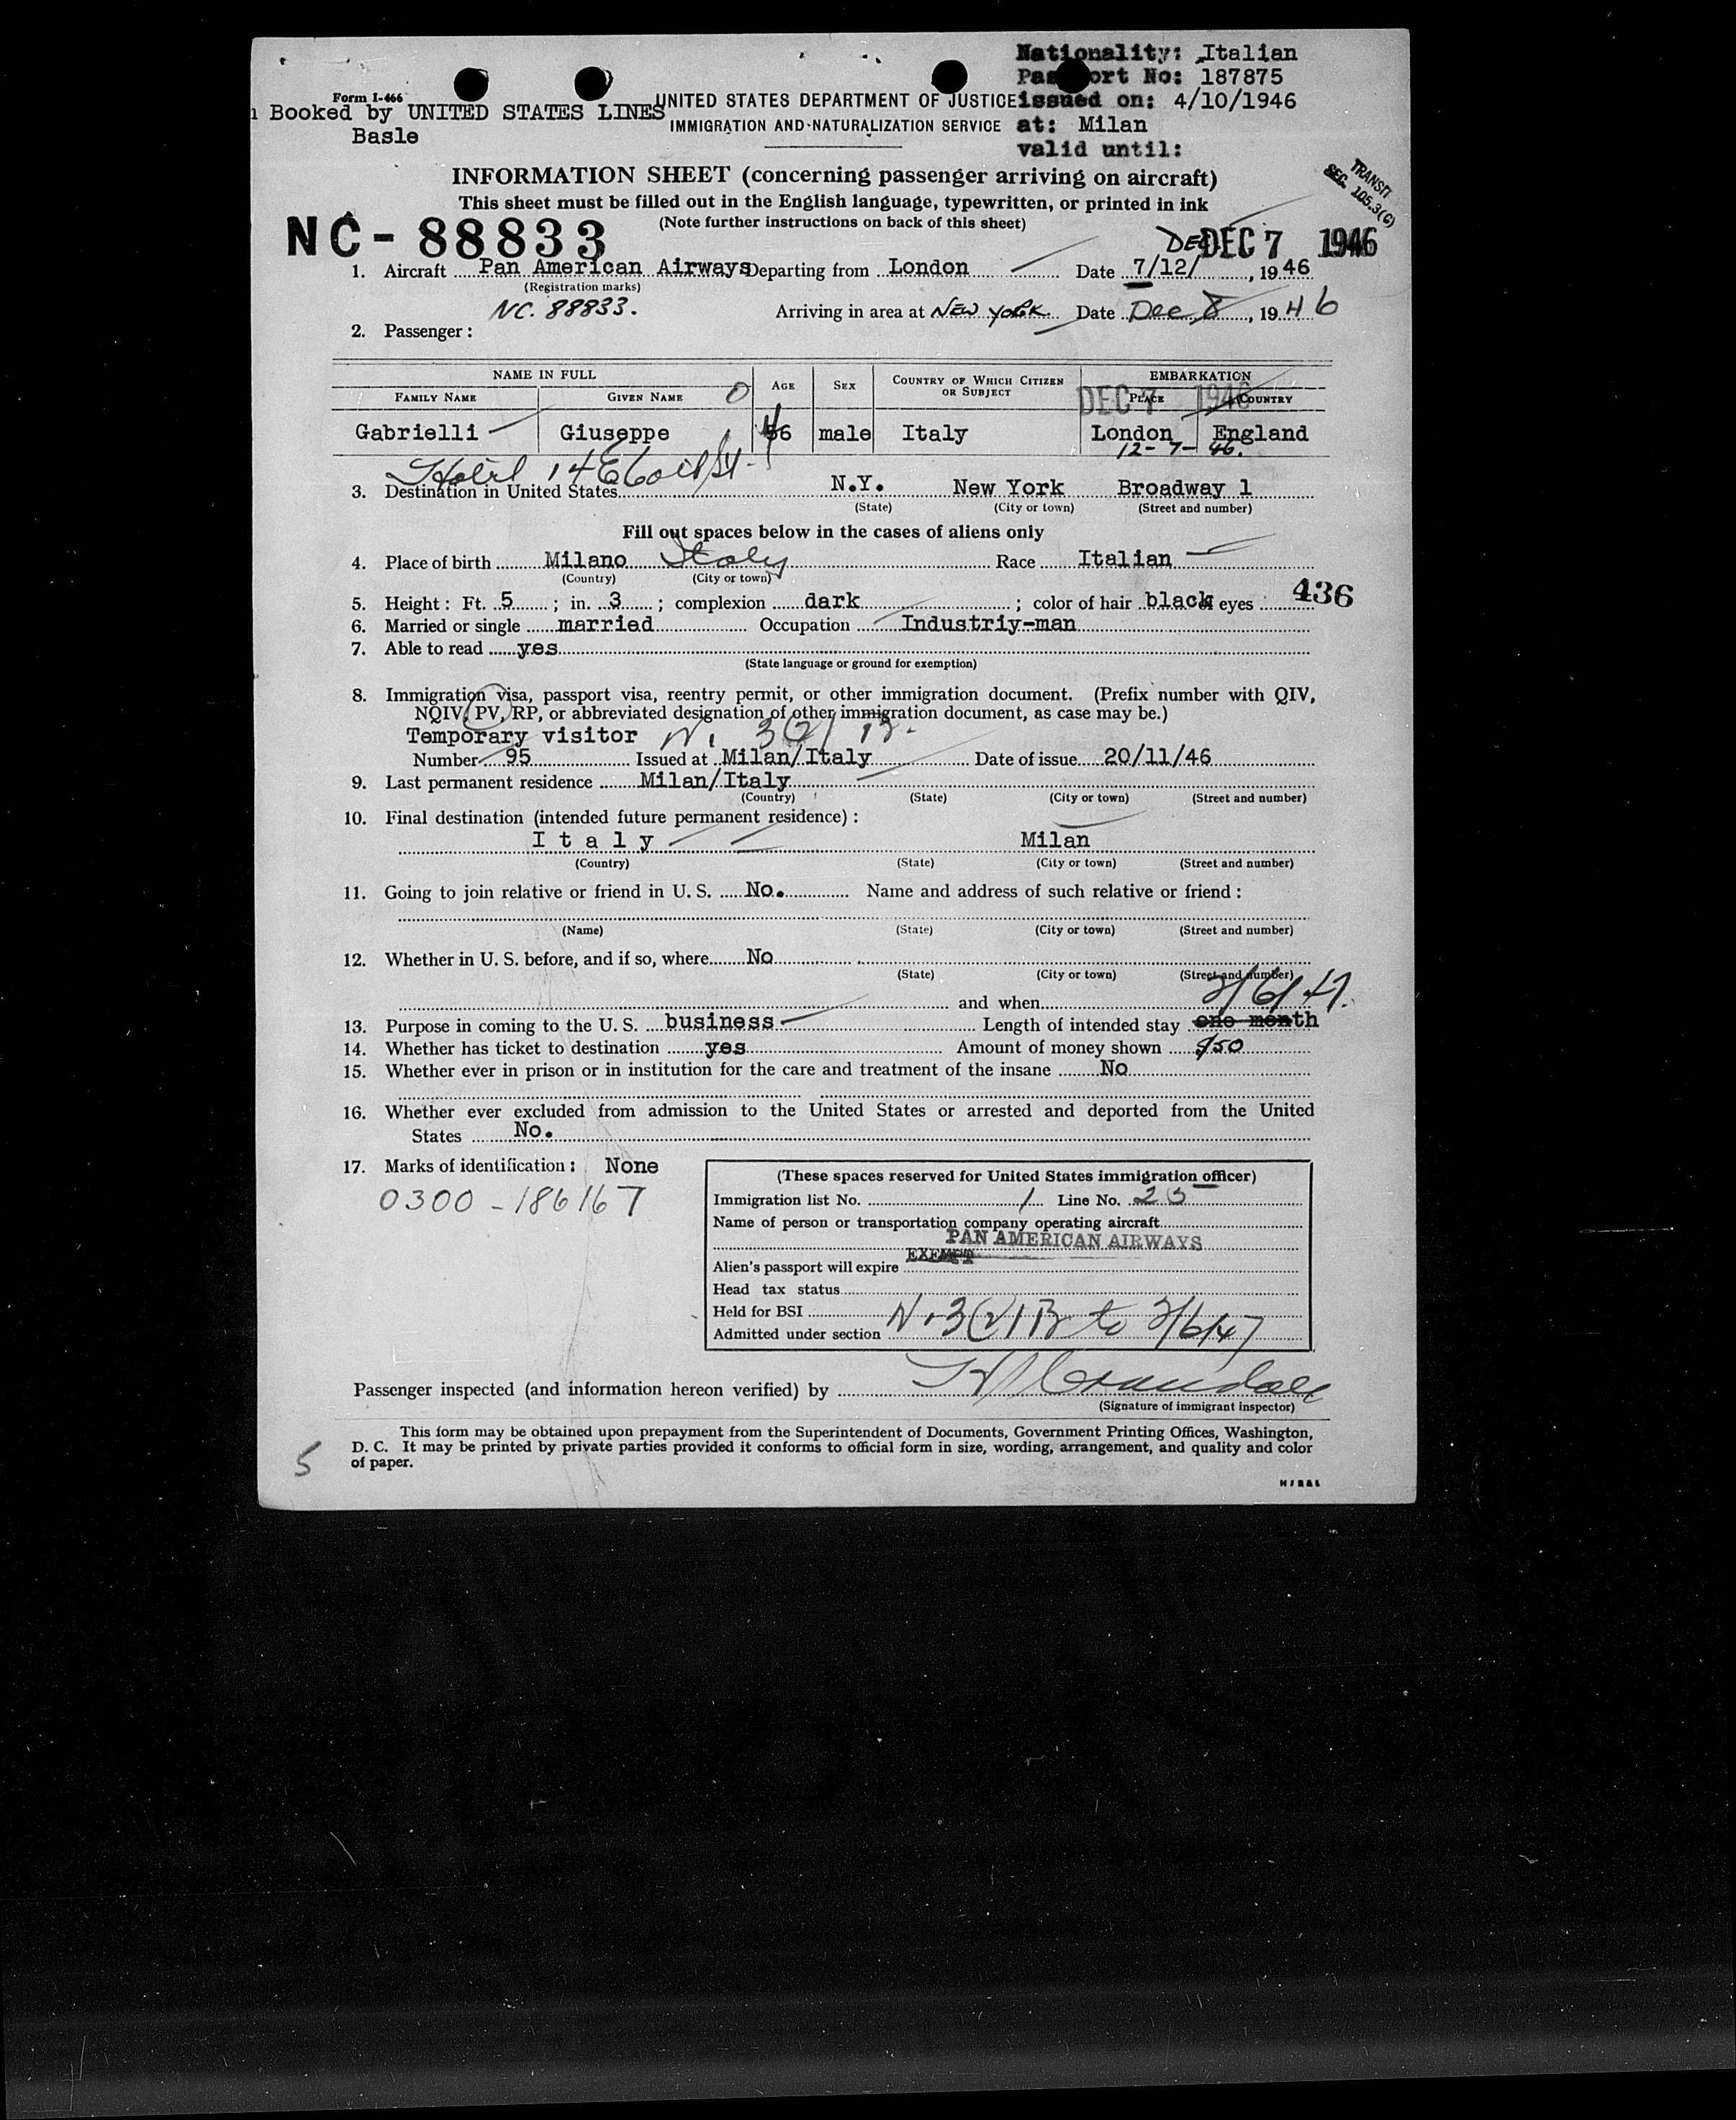 Nationality: Italian
Passport No: 187875
issued on: 4/10/1946
at: Milan
valid until:
Form I-466
Booked by UNITED STATES LINES
Basle
UNITED STATES DEPARTMENT OF JUSTICE
IMMIGRATION AND NATURALIZATION SERVICE
TRANSIT
SEC. 105.3(C)
INFORMATION SHEET (concerning passenger arriving on aircraft)
This sheet must be filled out in the English language, typewritten, or printed in ink
(Note further instructions on back of this sheet)
NC-88833
DEC DEC 7 1946
1. Aircraft Pan American Airways Departing from London Date 7/12/, 1946
(Registration marks)
NC. 88833. Arriving in area at NEW YORK. Date Dec 8, 1946
2. Passenger:
NAME IN FULL AGE SEX COUNTRY OF WHICH CITIZEN OR SUBJECT EMBARKATION
FAMILY NAME GIVEN NAME PLACE COUNTRY
DEC 7 1946
Gabrielli Giuseppe 46 male Italy London England
12-7-46.
Hotel 14 E 60th St.
3. Destination in United States N.Y. New York Broadway 1
(State) (City or town) (Street and number)
Fill out spaces below in the cases of aliens only
4. Place of birth Milano Italy Race Italian
(Country) (City or town)
5. Height: Ft. 5; in. 3; complexion dark; color of hair black eyes
436
6. Married or single married Occupation Industriy-man
7. Able to read yes
(State language or ground for exemption)
8. Immigration visa, passport visa, reentry permit, or other immigration document. (Prefix number with QIV,
NQIV, PV, RP, or abbreviated designation of other immigration document, as case may be.)
Temporary visitor
Number 95 Issued at Milan/Italy Date of issue 20/11/46
9. Last permanent residence Milan/Italy
(Country) (State) (City or town) (Street and number)
10. Final destination (intended future permanent residence):
Italy Milan
(Country) (State) (City or town) (Street and number)
11. Going to join relative or friend in U. S. No. Name and address of such relative or friend:
(Name) (State) (City or town) (Street and number)
12. Whether in U. S. before, and if so, where No
(State) (City or town) (Street and number)
and when
2/6/47.
13. Purpose in coming to the U. S. business Length of intended stay one month
14. Whether has ticket to destination yes Amount of money shown $50
15. Whether ever in prison or in institution for the care and treatment of the insane No
16. Whether ever excluded from admission to the United States or arrested and deported from the United
States No.
17. Marks of identification: None
0300-186167
(These spaces reserved for United States immigration officer)
Immigration list No. 1 Line No. 23
Name of person or transportation company operating aircraft
PAN AMERICAN AIRWAYS
EXEMPT
Alien's passport will expire
Head tax status
Held for BSI
Admitted under section N.3(2)13 to 2/6/47
Passenger inspected (and information hereon verified) by Crandall
(Signature of immigrant inspector)
This form may be obtained upon prepayment from the Superintendent of Documents, Government Printing Offices, Washington,
D. C. It may be printed by private parties provided it conforms to official form in size, wording, arrangement, and quality and color
of paper.
5